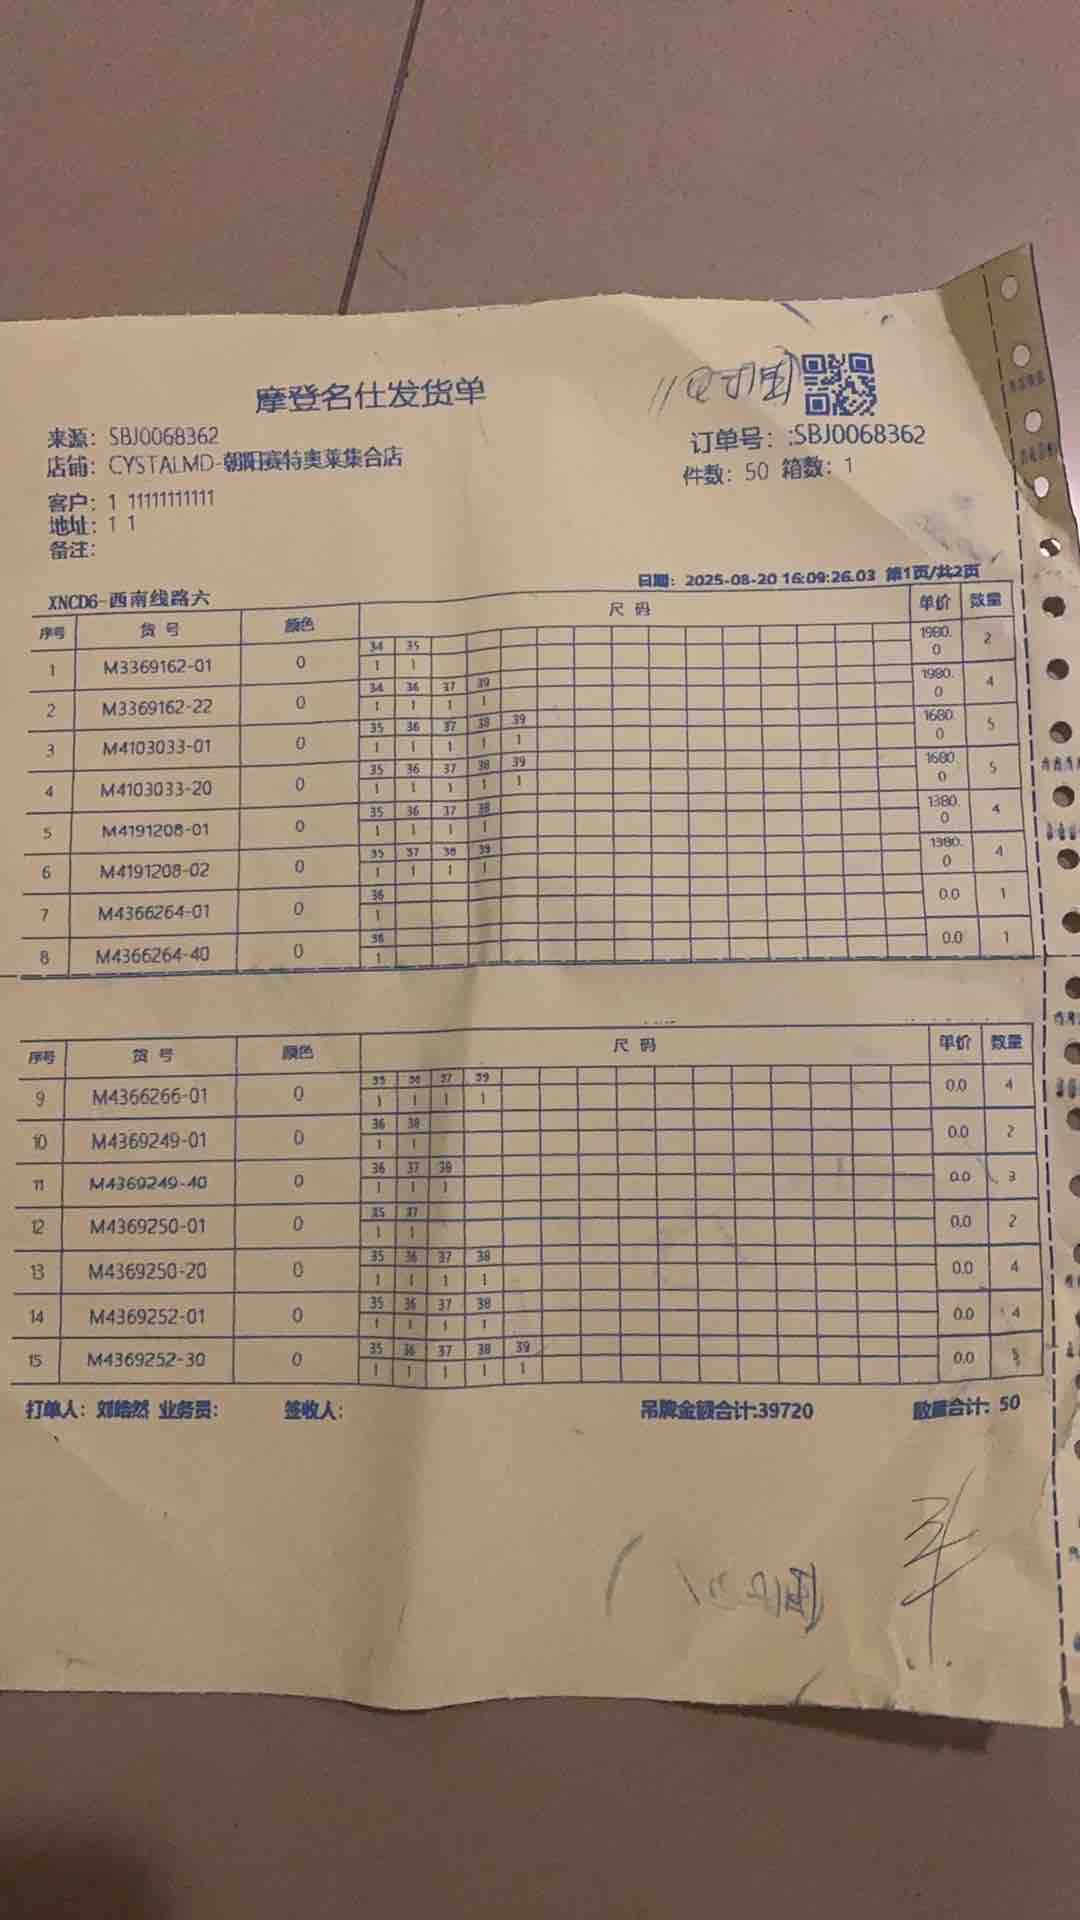 摩登名仕发货单
来源: SBJ0068362
订单号: :SBJ0068362
店铺: CYSTALMD-朝阳赛特奥莱集合店
件数: 50 箱数: 1
客户: 1 11111111111
地址: 1 1
备注:
日期: 2025-08-20 16:09:26.03 第1页/共2页
XNCD6-西南线路六
序号 货号 颜色 尺码 单价 数量
34 35
1 M3369162-01 0 1 1 1980.0 2
34 36 37 39
2 M3369162-22 0 1 1 1 1 1980.0 4
35 36 37 38 39
3 M4103033-01 0 1 1 1 1 1 1680.0 5
35 36 37 38 39
4 M4103033-20 0 1 1 1 1 1 1680.0 5
35 36 37 38
5 M4191208-01 0 1 1 1 1 1380.0 4
35 37 38 39
6 M4191208-02 0 1 1 1 1 1380.0 4
36
7 M4366264-01 0 1 0.0 1
36
8 M4366264-40 0 1 0.0 1
序号 货号 颜色 尺码 单价 数量
35 36 37 39
9 M4366266-01 0 1 1 1 1 0.0 4
36 38
10 M4369249-01 0 1 1 0.0 2
36 37 38
11 M4369249-40 0 1 1 1 0.0 3
35 37
12 M4369250-01 0 1 1 0.0 2
35 36 37 38
13 M4369250-20 0 1 1 1 1 0.0 4
35 36 37 38
14 M4369252-01 0 1 1 1 1 0.0 4
35 36 37 38 39
15 M4369252-30 0 1 1 1 1 1 0.0 5
打单人: 刘皓然 业务员: 签收人: 吊牌金额合计:39720 数量合计: 50